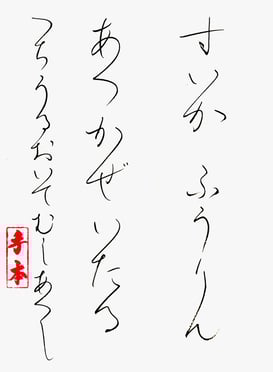 すいか ふうりん
あつかぜいたる
つちうるおいてむしあつし
手本